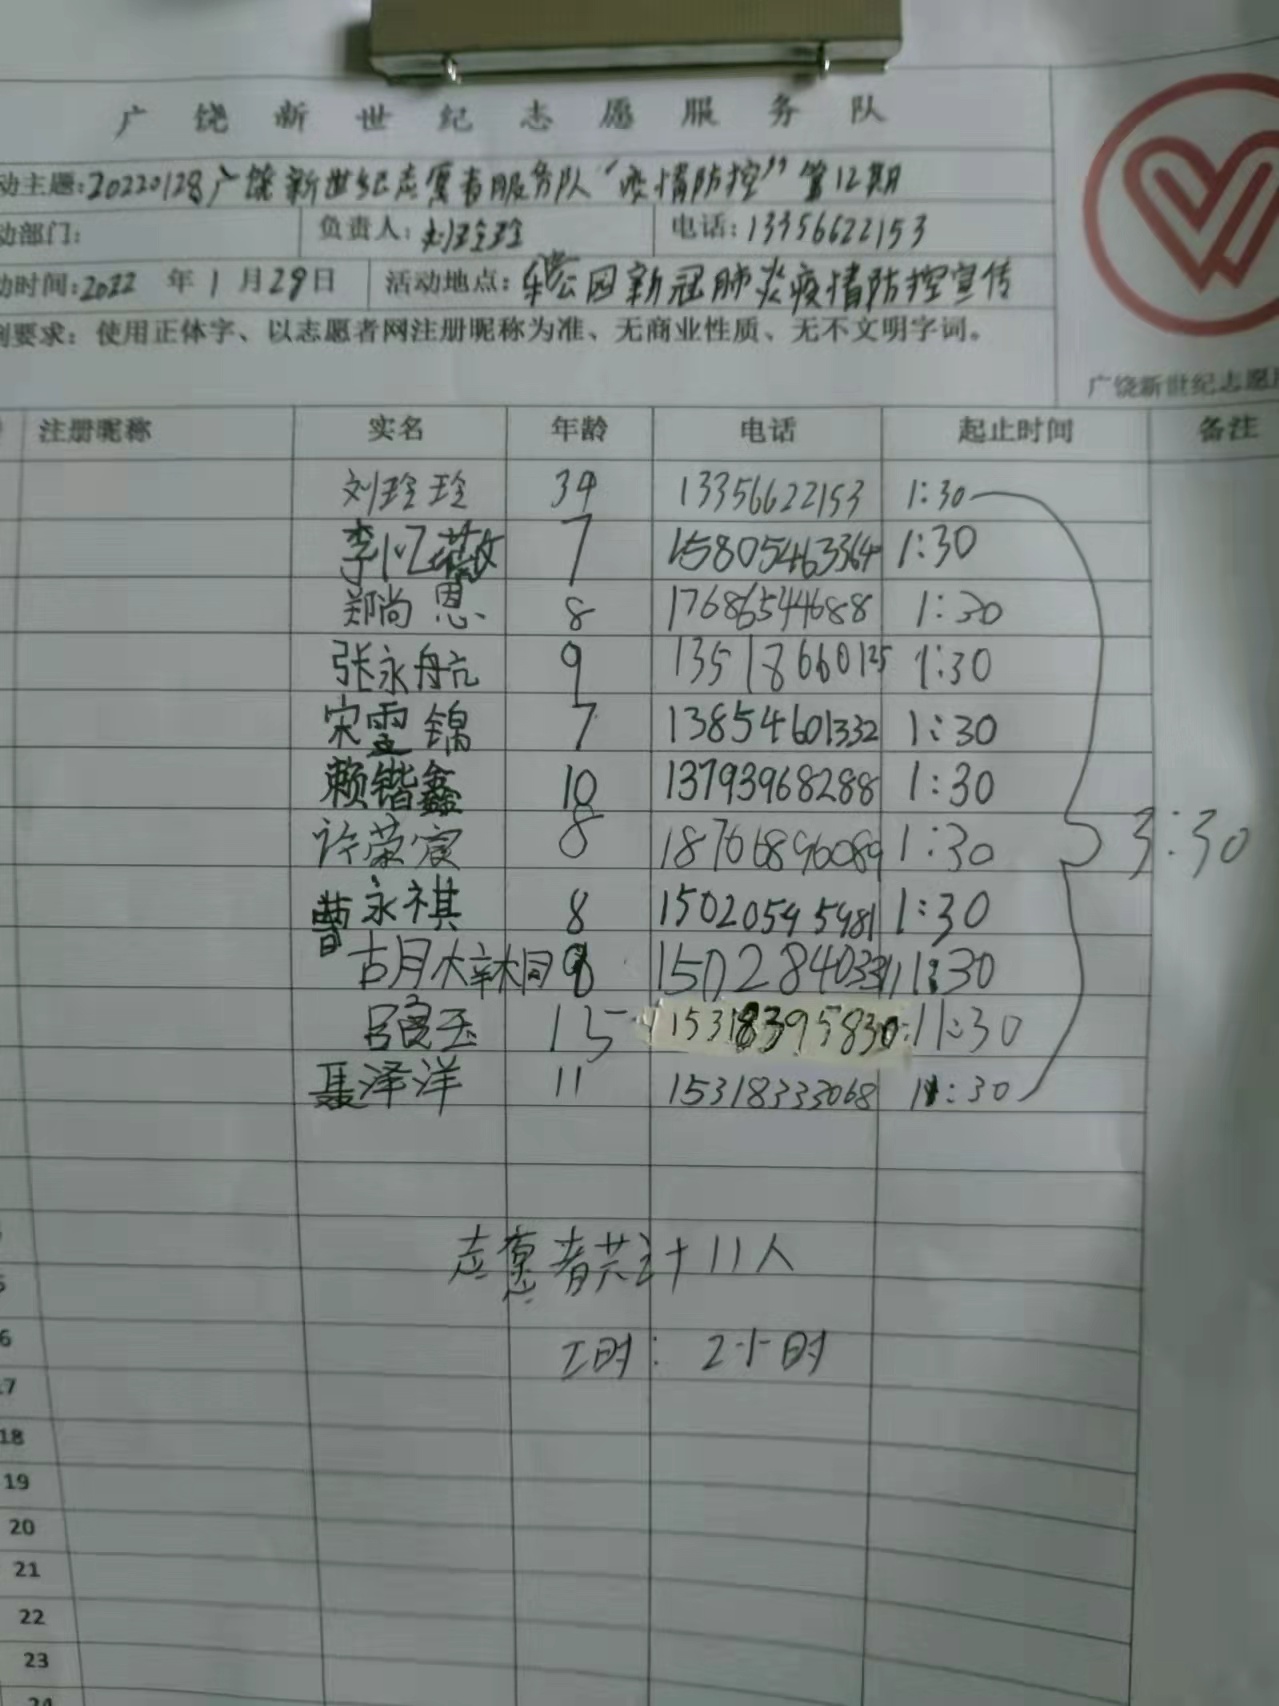 广饶新世纪志愿服务队
动主题:20220128广饶新世纪志愿者服务队“疫情防控”第12期
动部门: 负责人:刘玲玲 电话:13356622153
动时间:2022 年 1 月 29 日 活动地点:乐公园新冠肺炎疫情防控宣传
到要求:使用正体字、以志愿者网注册昵称为准、无商业性质、无不文明字词。
广饶新世纪志愿
注册昵称 实名 年龄 电话 起止时间 备注
刘玲玲 34 13356622153 1:30
李忆薇 7 15805463364 1:30
郑尚恩 8 17686544688 1:30
张永航 9 13518660125 1:30
宋雯锦 7 13854601332 1:30
赖锴鑫 10 13793968288 1:30
许荣宸 8 18766896089 1:30
3:30
曹永祺 8 15020545481 1:30
胡梓桐 8 1:30
吕良玉 15 15318395830 1:30
聂泽洋 11 15318333068 1:30
志愿者共计11人
工时:2小时
6
17
18
19
20
21
22
23
24